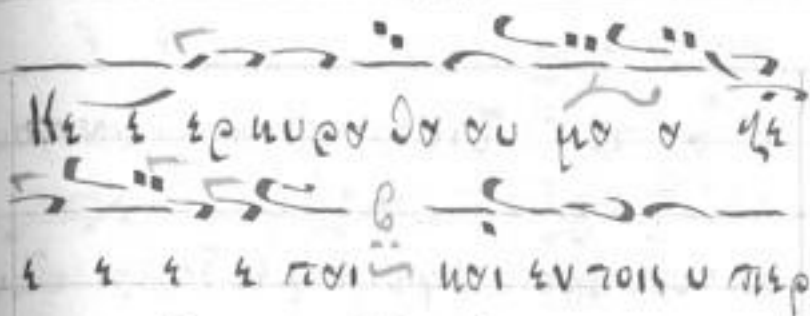 Κε ε ερ κυ ρα θα αυ μα α ζε
ε ε ε ε ται και εν τοις υ περ